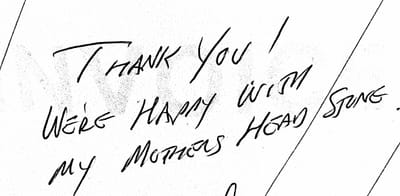 THANK YOU!
WE'RE HAPPY WITH
MY MOTHERS HEAD STONE.